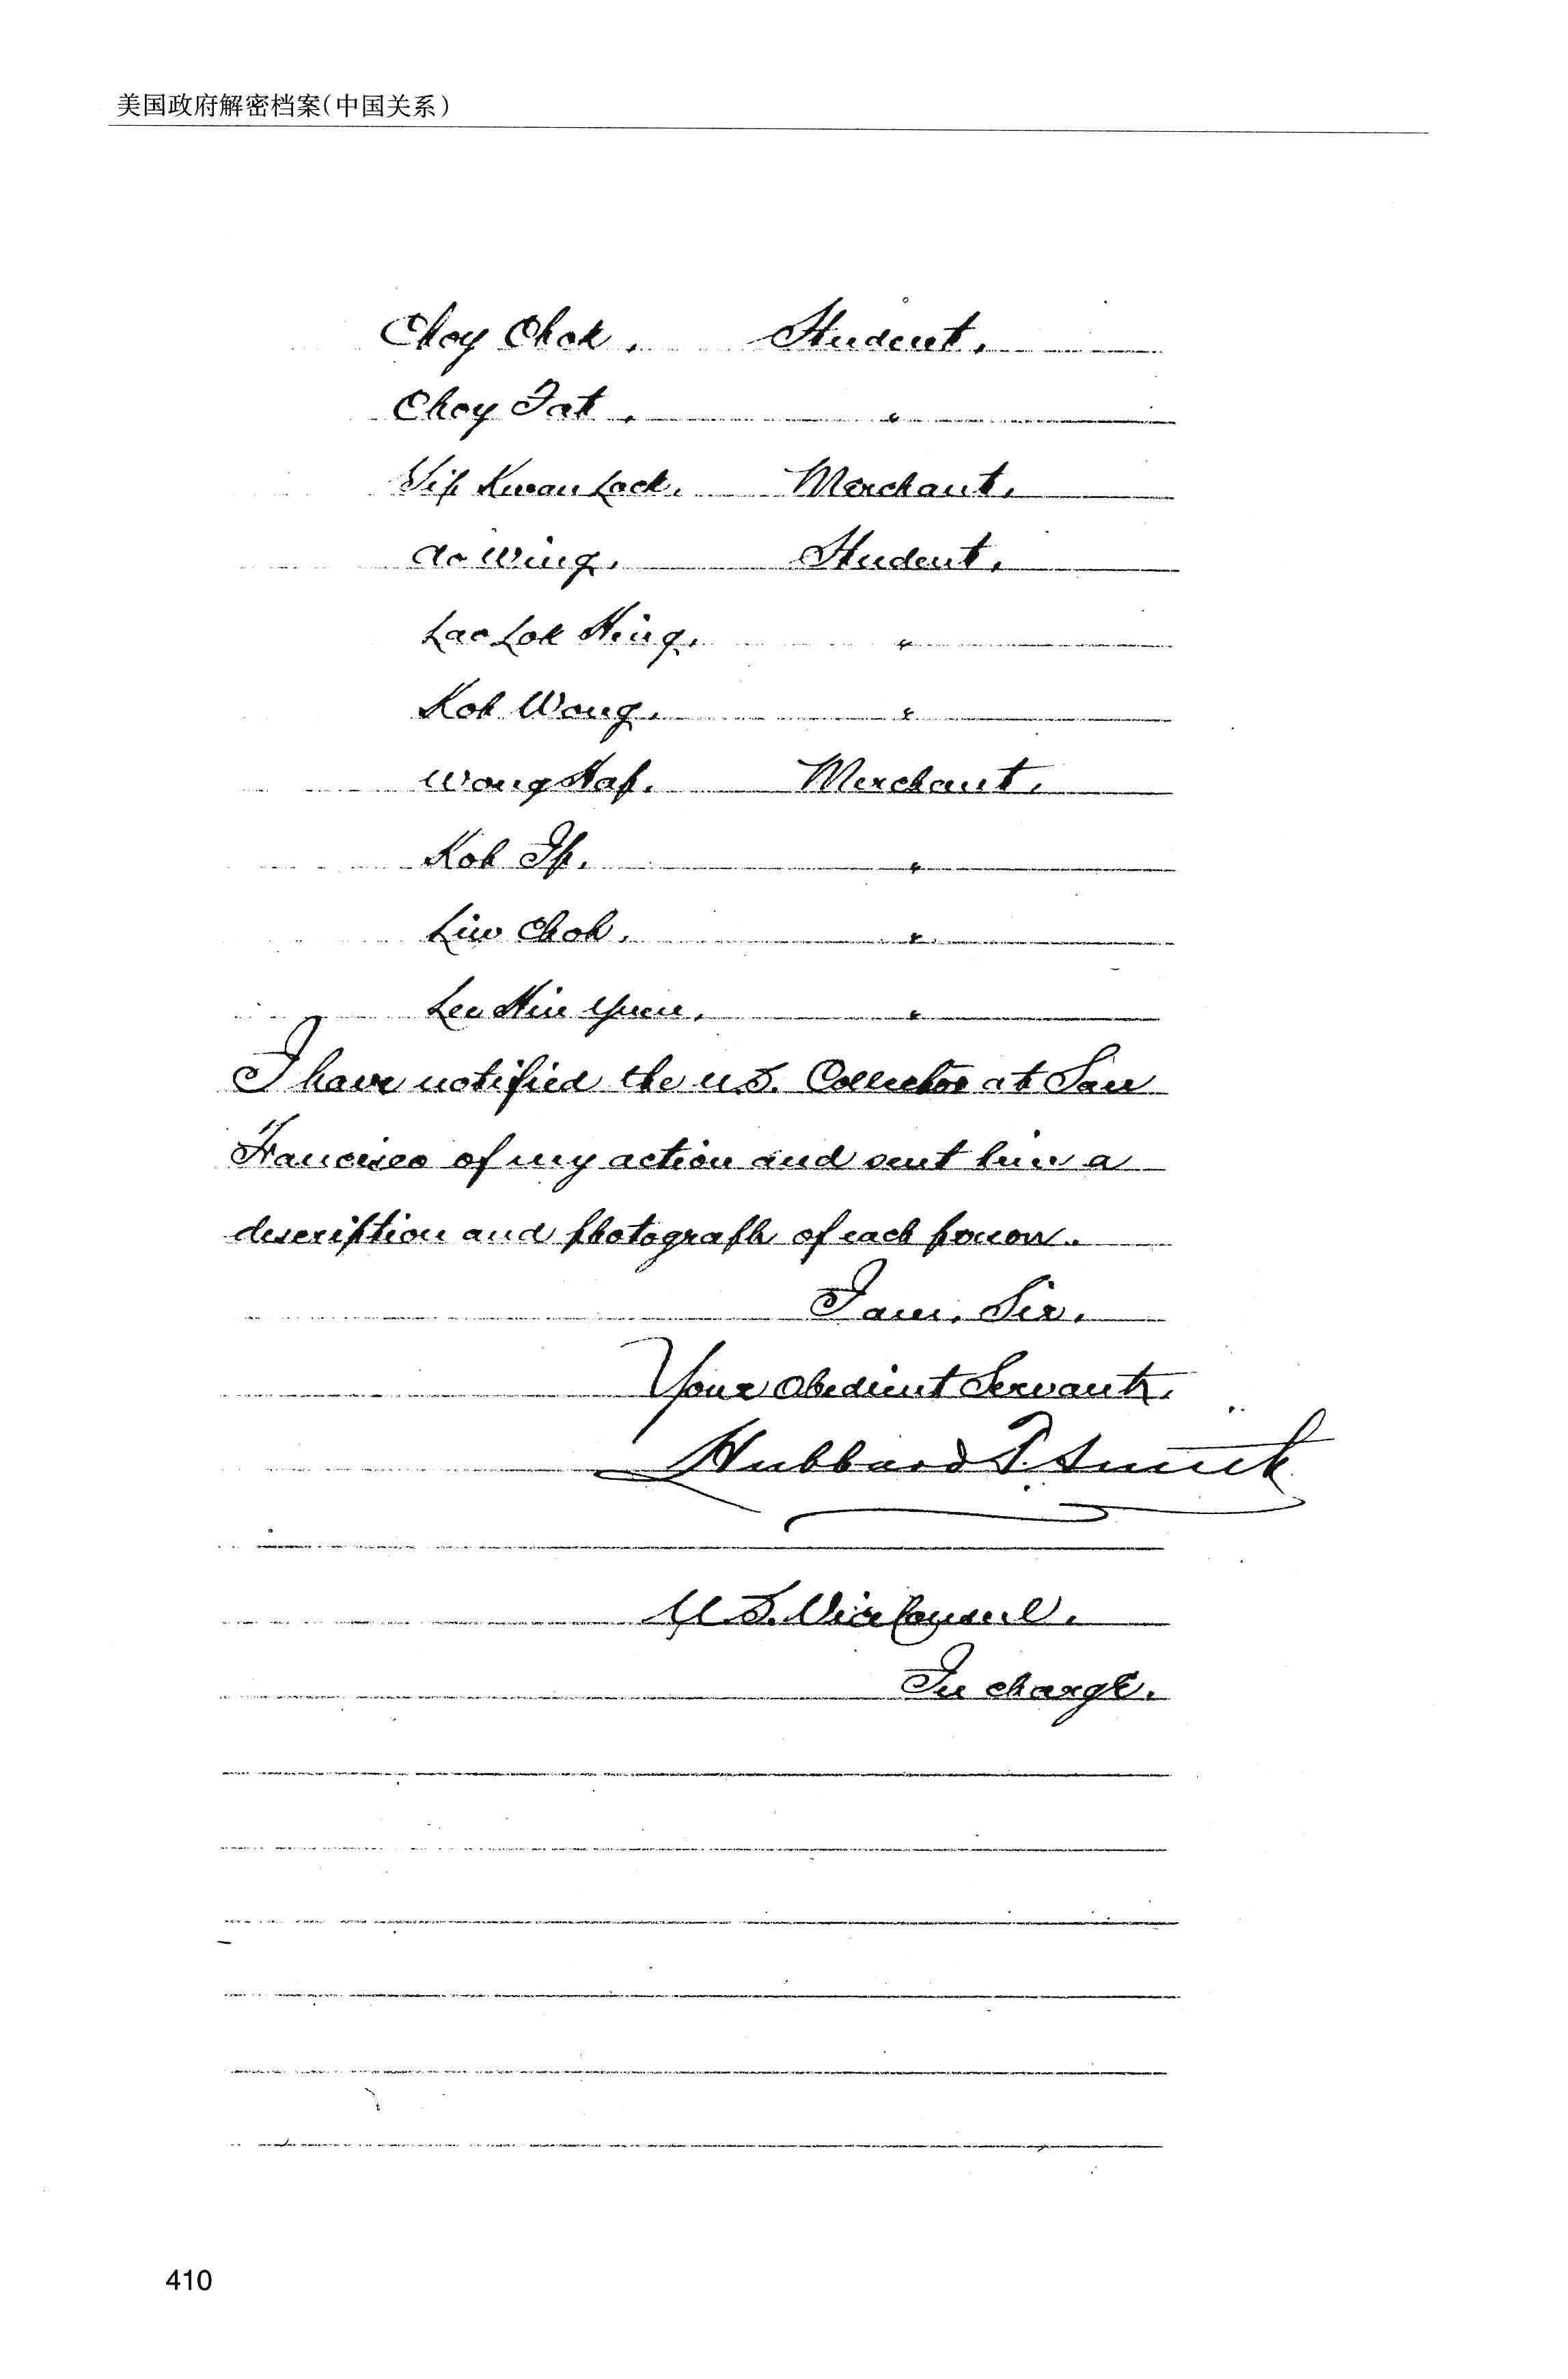 美国政府解密档案(中国关系)
Choy Chok. Student.
Choy Fat. "
Yip Kwan Lock. Merchant.
Ao Wing. Student.
Lao Lok Hing. "
Kob Wong. "
Wong Hap. Merchant.
Kob Ip. "
Liw Chob. "
Lee Hin Yuen. "
I have notified the U.S. Collector at San
Francisco of my action and sent him a
description and photograph of each person.
I am, Sir,
Your Obedient Servant,
Hubbard T. Smith
U.S. Vice Consul.
In charge.
410